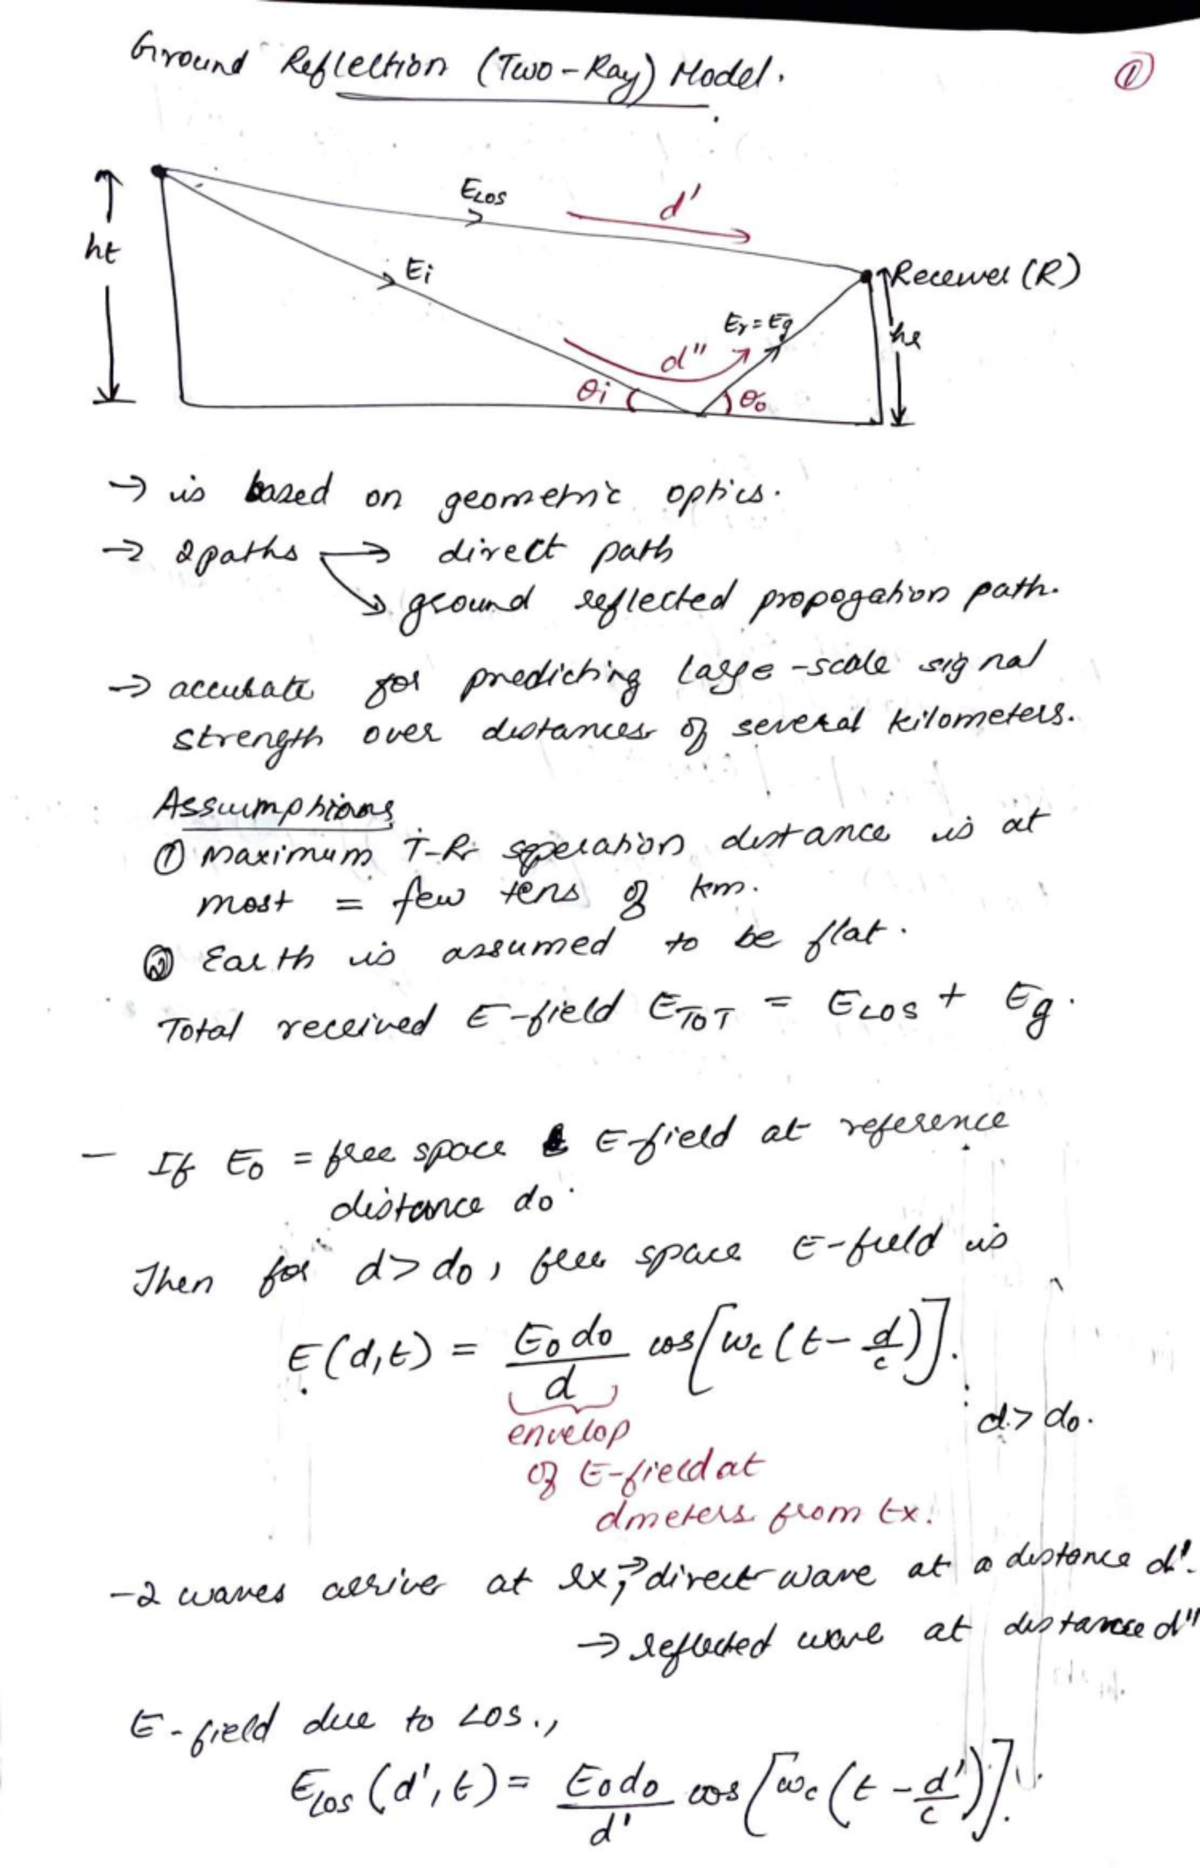 Ground Reflection (Two-Ray) Model.
①
ELOS
d'
ht
Ei
Receiver (R)
Er = Eg
hr
d"
θi
θo
→ is based on geometric optics.
→ 2 paths → direct path
↘ ground reflected propogation path.
→ accurate for predicting large-scale signal
strength over distances of several kilometers.
Assumptions
① Maximum T-R seperation distance is at
most = few tens of km.
② Earth is assumed to be flat.
Total received E-field ETOT = ELOS + Eg.
- If E0 = free space E-field at reference
distance do.
Then for d > do, free space E-field is
E(d,t) = Eo do / d cos[wc(t - d/c)].
d > do.
envelop
of E-field at
d meters from tx.
- 2 waves arrive at rx, → direct wave at a distance d'.
→ reflected wave at distance d"
E-field due to LOS.,
ELOS (d', t) = Eo do / d' cos[wc(t - d'/c)].